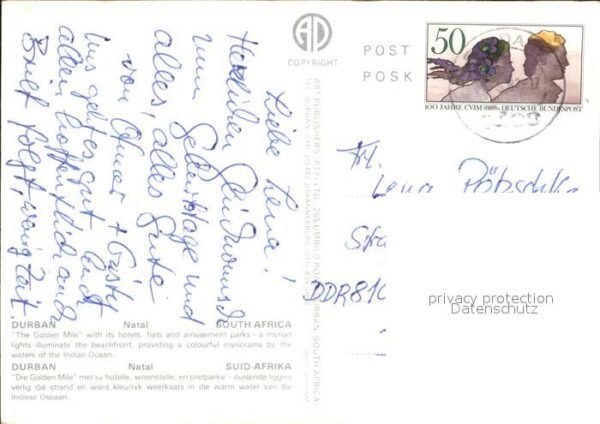 Liebe Lena!
Herzlichen Glückwunsch
zum Geburtstage und
alles, alles Gute
von Otmar + Gustel
Uns geht es gut. Euch
allen hoffentlich auch
Brief folgt, wenig Zeit.
AD
COPYRIGHT
POST
POSK
50
100 JAHRE CVJM DEUTSCHE BUNDESPOST
ART PUBLISHERS (PTY) LTD., 265 UMBILO ROAD, DURBAN, SOUTH AFRICA
Frl.
Lena
DDR 810
privacy protection
Datenschutz
DURBAN Natal SOUTH AFRICA
"The Golden Mile" with its hotels, flats and amusement parks - a myriad
lights illuminate the beachfront, providing a colourful myriorama by the
waters of the Indian Ocean.
DURBAN Natal SUID-AFRIKA
"Die Golden Mile" met sy hotelle, woonstelle, en pretparke - duisende liggies
verlig die strand en word kleurryk weerkaats in die warm water van die
Indiese Oseaan.